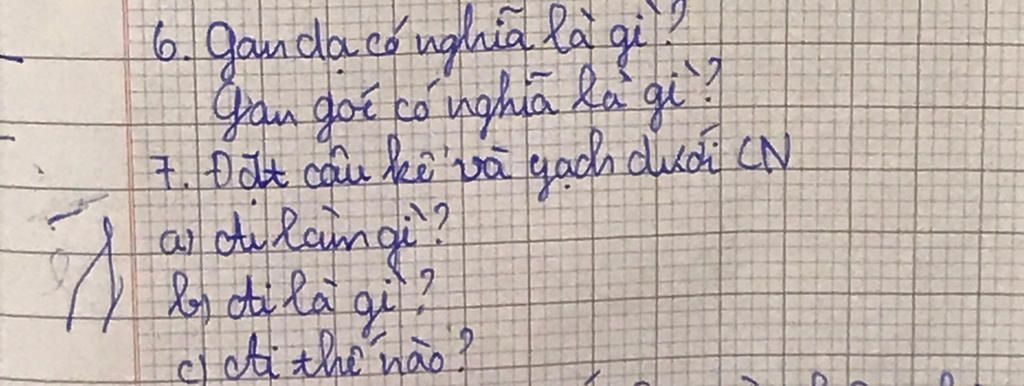 6. Gan dạ có nghĩã là gì?
Gan góc có nghĩã là gì?
7. Đặt câu kể và gạch dưới CN
a) Ai làm gì?
b) Ai là gì?
c) Ai thế nào?